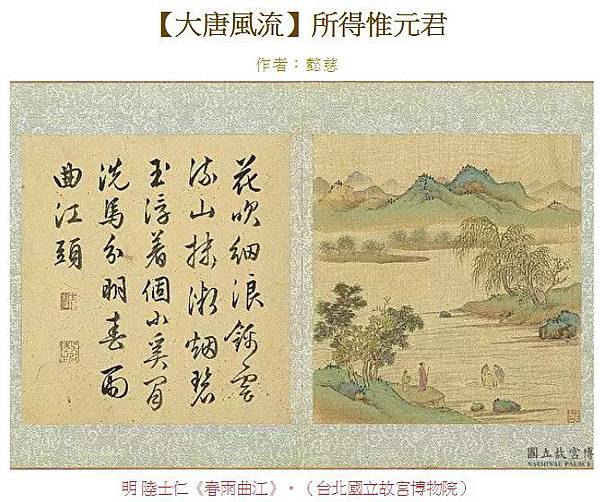 【大唐風流】所得惟元君
作者：懿慈
花吹細浪錦雲
流山抹微烟碧
玉浮着個小奚閒
洗馬分明春雨
曲江頭
國立故宮博
NATIONAL PALACE
明 陸士仁《春雨曲江》。（台北國立故宮博物院）